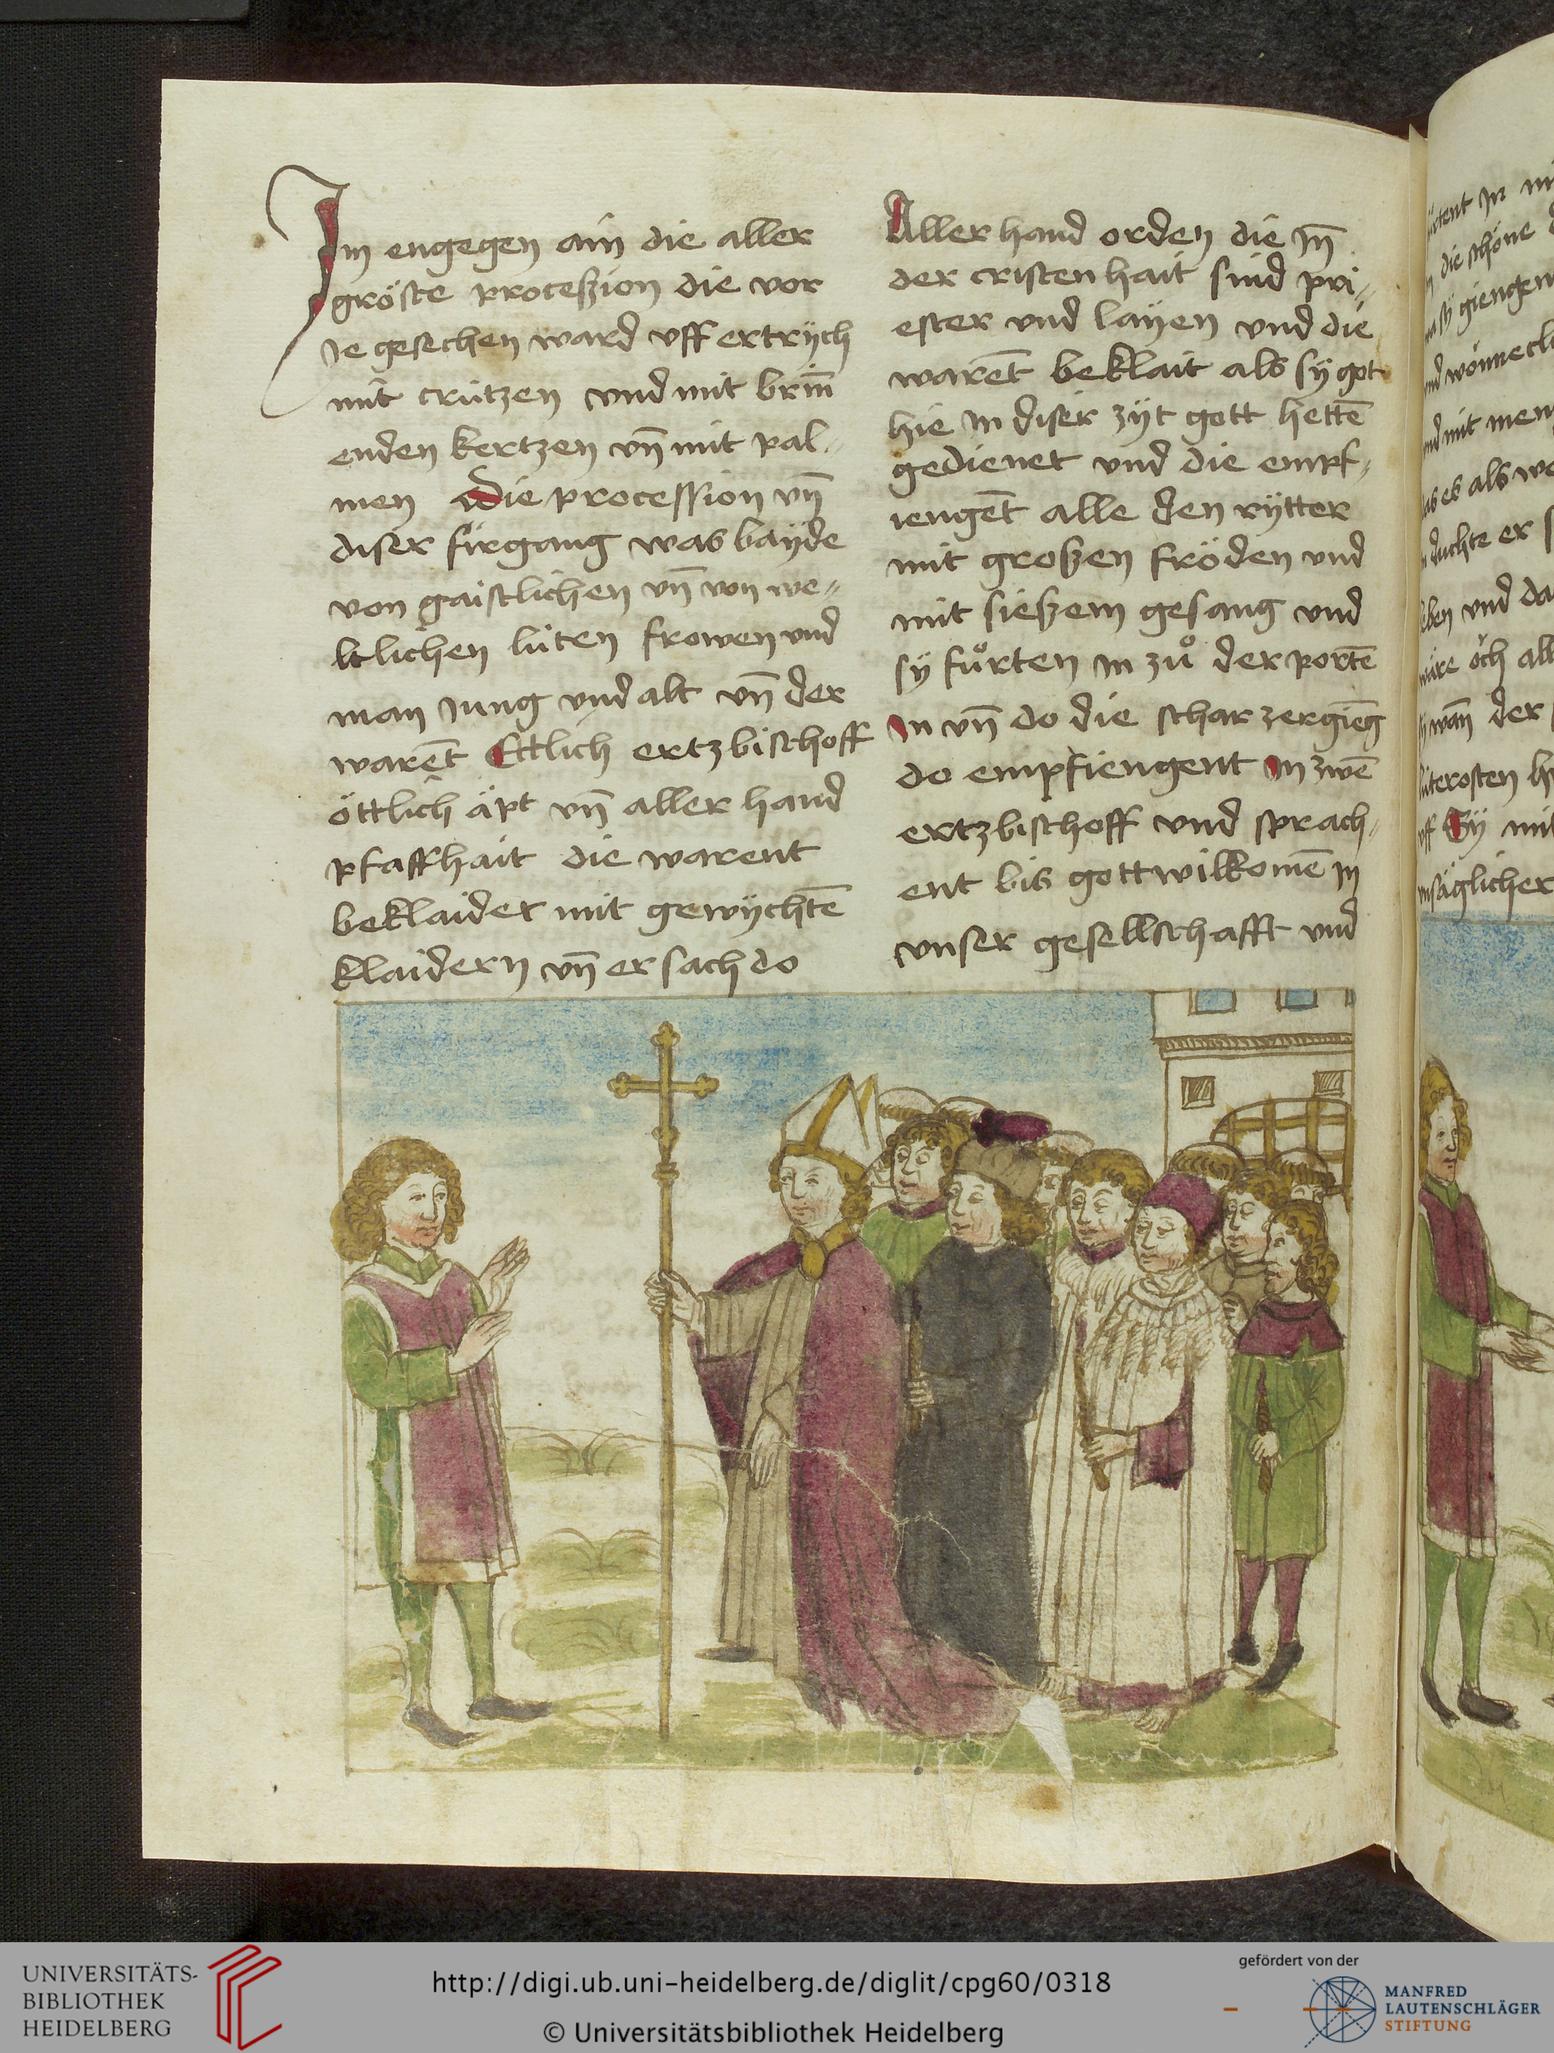 Im engegen ain die aller
gröste proceßion die vor
ie gesechen ward vff ertrÿch
mit crützen vnd mit brin̄
enden kertzen vn̄ mit pal-
men Die procession vn̄
diser fürgang was baÿde
von gaistlichen vn̄ von we-
ltlichen lüten frowen vnd
man Jung vnd alt vn̄ der
warēt Ettlich ertzbischoff
öttlich äpt vn̄ aller hand
pfaffhait die warent
beklaider mit gewÿchtē
klaidern vn̄ er sach do
Aller hand orden die Jn̄
der cristenhait sind pri-
ester vnd laÿen vnd die
warēt beklait als sÿ got
hie in diser zÿt gott hettē
gedienet vnd die empf-
iengēt alle den rÿtter
mit großen fröden vnd
mit sießem gesang vnd
sÿ fuͦrten in zuͦ der portē
In vn̄ do die schar zergiēg
do empfiengent In zwē
ertzbischoff vnd sprach-
ent bis gott wilkomē in
vnser gesellschafft vnd
die schöne
sÿ giengen
vnd mit
als
duchte er
vnd da
öch all
wan̄ der
vff Sÿ mit
UNIVERSITÄTS-
BIBLIOTHEK
HEIDELBERG
http://digi.ub.uni-heidelberg.de/diglit/cpg60/0318
© Universitätsbibliothek Heidelberg
gefördert von der
MANFRED
LAUTENSCHLÄGER
STIFTUNG